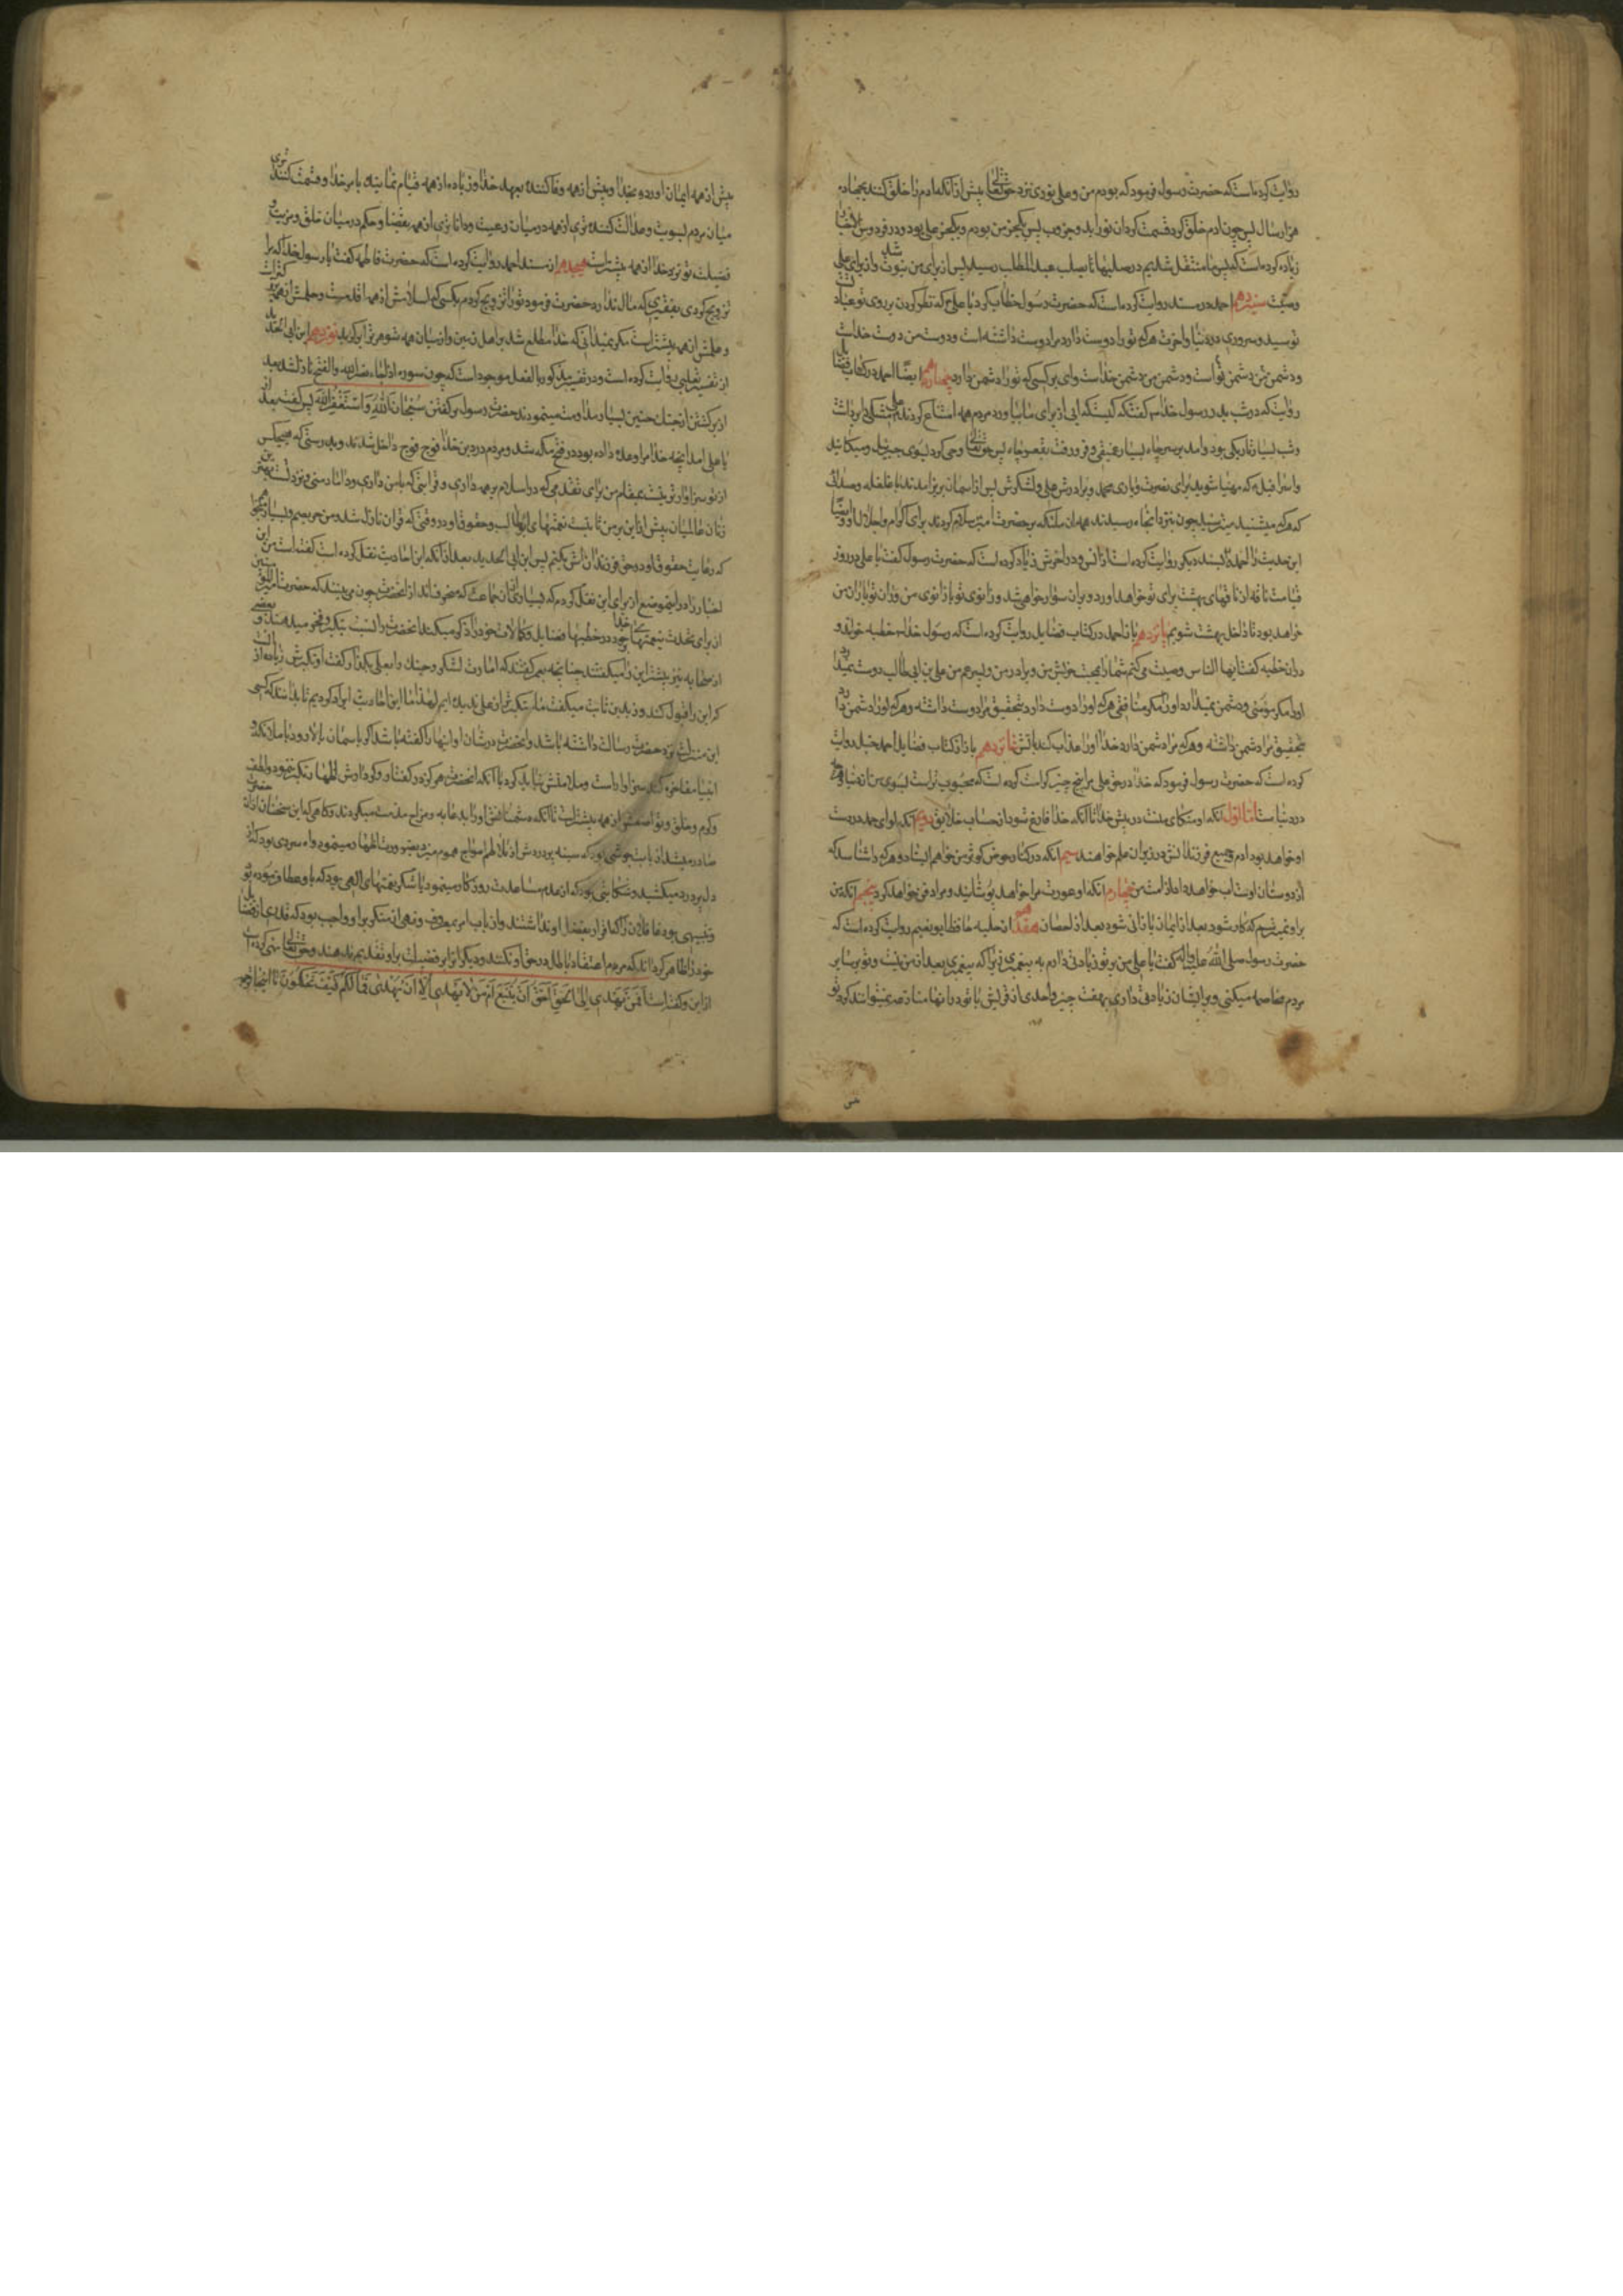 روایت کرده است که حضرت رسول فرمود که بودم من و علی نوری نزد حق تعالی پیش از آنکه آدم را خلق کند بچهارده
هزار سال پس چون آدم خلق کرد قسمت کرد آن نور را بدو جزو پس یکجزء من بودم و یکجزء علی بود و در فردوس الاخبار
زیاده کرده است که پس ما منتقل شدیم در صلبها تا بصلب عبد المطلب رسید پس از برای من نبوت شد و از برای علی
وصیت سیزدهم احمد در مسند روایت کرده است که حضرت رسول خطاب کرد با علی که نظر کردن بر روی تو عبادتست
تو سید و سروری در دنیا و آخرت هرکه تو را دوست دارد مرا دوست داشته است و دوست من دوست خداست
و دشمن تو دشمن من است و دشمن من دشمن خداست وای بر کسی که تو را دشمن دارد چهاردهم ایضا احمد در کتاب فضایل
روایت که در شب بدر رسول خدا گفت که کیست که آبی از برای ما بیاورد مردم همه امتناع کردند علی مشکی برداشت
و شب بسیار تاریکی بود و آمد بر سر چاه بسیار عمیقی و فرو رفت بقعر چاه پس حق تعالی وحی کرد بسوی جبرئیل و میکائیل
و اسرافیل که مهیا شوید برای نصرت و یاری محمد و برادرش علی و لشکرش پس از آسمان بزیر آمدند با غلغله و صدائی
که هرکه میشنید میترسید چون بنزد آنجاه رسیدند همه آن ملئکه بر حضرت امیر سلام کردند برای اکرام و اجلال او و ایضا
این حدیث را احمد بسند دیگر روایت کرده است از انس و در آخرش زیاد کرده است که حضرت رسول گفت یا علی در روز
قیامت ناقه از ناقهای بهشت برای تو خواهد آورد و بر آن سوار خواهی شد و زانوی تو با زانوی من و ران تو با ران من
خواهد بود تا داخل بهشت شویم پانزدهم باز احمد در کتاب فضایل روایت کرده است که رسول خدا خطبه خواند و
در آن خطبه گفت ایها الناس وصیت می کنم شما را بمحبت خویش من و برادر من و پسر عم من علی بن ابی طالب دوست نمیدارد
او را مگر مؤمنی و دشمن نمیدارد او را مگر منافقی هرکه او را دوست دارد بتحقیق مرا دوست داشته و هرکه او را دشمن دارد
بتحقیق مرا دشمن داشته و هرکه مرا دشمن دارد خدا او را عذاب کند بآتش شانزدهم باز از کتاب فضایل احمد حنبل روایت
کرده است که حضرت رسول فرمود که خدا در حق علی مرا پنج چیز کرامت کرده است که محبوب تر است بسوی من از دنیا و آنچه
در دنیاست اما اول آنکه او متکای منست در پیش خدا تا آنکه خدا فارغ شود از حساب خلایق دویم آنکه لوای حمد در دست
او خواهد بود آدم و جمیع فرزندانش در زیر آن علم خواهند سیم آنکه در کنار حوض کوثر من خواهم ایستاد و هرکه را شناسد که
از دوستان اوست آب خواهد داد از امت من چهارم آنکه او عورت مرا خواهد پوشانید و مرا دفن خواهد کرد پنجم آنکه من
بر او نمیترسم که کافر شود بعد از ایمان یا زانی شود بعد از احصان هفدهم از حلیه حافظ ابو نعیم روایت کرده است که
حضرت رسول صلی الله علیه و آله گفت یا علی من بر تو زیادتی دارم به پیغمبری زیرا که پیغمبری بعد از من نیست و تو بر سایر
مردم مخاصمه میکنی و بر ایشان زیادتی داری بهفت چیز و احدی از قریش با تو در آنها منازعه نمیتوانند کرد تو
پیش از همه ایمان آورده بخدا و پیش از همه وفا کننده بعهد خدا و زیاده از همه قیام نماینده بامر خدا و قسمت کننده تری
میان مردم بسویت و عدالت کننده تری از همه در میان رعیت و داناتری از همه بقضا و حکم در میان خلق و مزیت و
فضیلت تو نزد خدا از همه بیشتر است هیجدهم از مسند احمد روایت کرده است که حضرت فاطمه گفت یا رسول خدا که مرا
تزویج کردی بفقیری که مال ندارد حضرت فرمود تو را تزویج کردم بکسی که اسلامش از همه اقدمست و حلمش از همه
و علمش از همه بیشتر است مگر نمیدانی که خدا مطلع شد بر اهل زمین و از میان همه شوهر ترا برگزید نوزدهم ابن ابی الحدید
از تفسیر ثعلبی روایت کرده است و در تفسیر مذکور بالفعل موجود است که چون سوره اذا جاء نصر الله والفتح نازل شد بعد
از برگشتن از جنک حنین بسیار مداومت مینمودند حضرت رسول بر گفتن سبحان الله و استغفر الله پس گفت بعد از آن
یا علی آمد آنچه خدا مرا وعده داده بود در فتح مکه شد و مردم در دین خدا فوج فوج داخل شدند و بدرستی که هیچکس
از تو سزاوارتر نیست بمقام من برای تقدمی که در اسلام بر همه داری و قرابتی که با من داری و داماد منی و نزد تست بهترین
زنان عالمیان پیش از این بر من ثابت نعمتهای ابو طالب و حقوق او در وقتی که قرآن نازل شد من حریصم و بسیار میخواهم
که رعایت حقوق او در حق فرزندانش بکنم پس ابن ابی الحدید بعد از آنکه این احادیث نقل کرده است گفته است من این
اخبار را در اینموضع از برای این نقل کردم که بسیاری از آن جماعت که منحرفاند از آنحضرت چون می بینند که حضرت امیر المؤمنین
از برای تحدث بنعمتهای خدا که در خطبها فضایل و کمالات خود را ذکر میکند آنحضرت را نسبت بتکبر و فخر میدهند و بعضی
از صحابه نیز پیشتر این را میگفتند چنانچه بعمر گفتند که امارت لشکر و جنک را بعلی بگذار گفت او تکبرش زیاده از آنست
که این را قبول کند و زید بن ثابت میگفت ما متکبرتر از علی ندیده ایم لهذا ما این احادیث ایراد کردیم تا بدانند که کسی
این منزلت نزد حضرت رسالت داشته باشد و آنحضرت در شان او اینها را گفته باشد اگر بآسمان بالا رود و با ملائکه و
انبیا مفاخره کند سزاوار است و ملامتش نباید کرد با آنکه آنحضرت هرگز در گفتار و کردارش اظهار تکبر ننمود و لطف
و کرم و خلق و تواضعش از همه بیشتر است تا آنکه دشمنانش او را بدعابه و مزاح مذمت میکردند و گاهی که این سخنان از آن حضرت
صادر میشد از باب جوشی بود که سینه پر دردش از تلاطم امواج هموم میزد بضرورت اظهار مینمود و آه سردی بود که از
دل پر درد میکشید و شکایتی بود که از عدم مساعدت روزگار مینمود یا شکر نعمتهای الهی بود که باو عطا فرموده بود
و تنبیهی بود غافلان را که اقرار بفضل او نداشتند و از باب امر بمعروف و نهی از منکر بر او واجب بود که قدری از فضایل
خود را ظاهر گرداند که مردم اعتقاد باطل در حق او نکنند و دیگران را در فضیلت بر او تقدیم ندهند و حق تعالی نهی کرده است
از این و گفته است افمن یهدی الی الحق احق ان یتبع ام من لا یهدی الا ان یهدی فما لکم کیف تحکمون تا اینجا